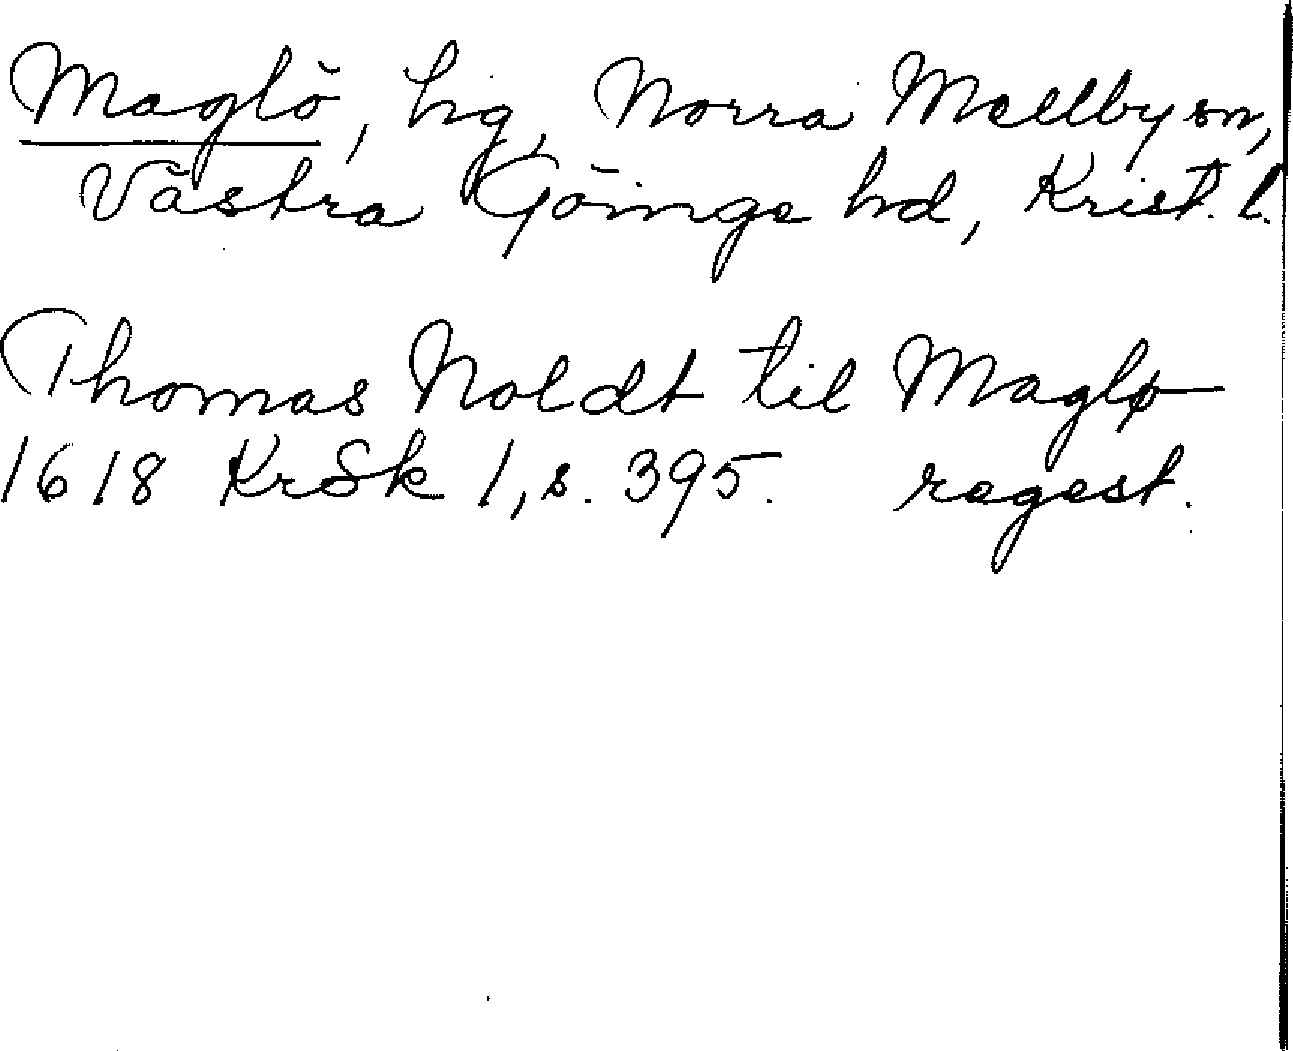 Maglö, hg, Norra Mellby sn,
Västra Göinge hd, Krist. l.
Thomas Noldt til Maglø
1618 KrSk 1, s. 395. regest.